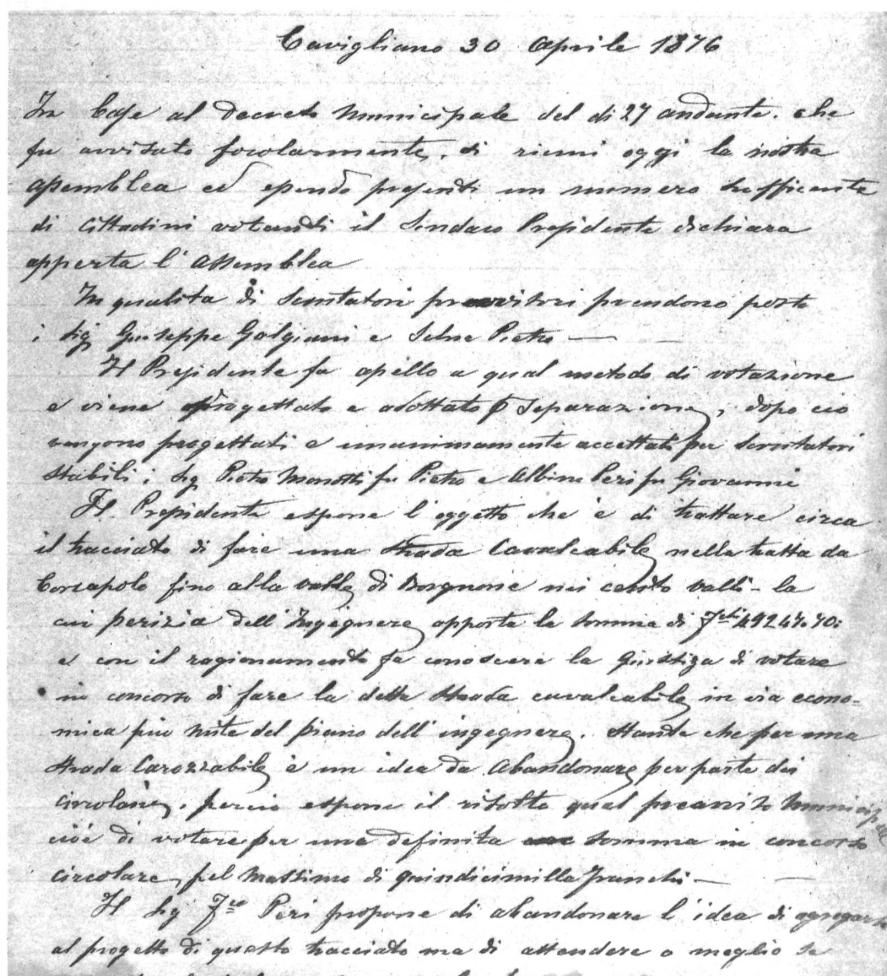 Cavigliano 30 Aprile 1876
In base al decreto Municipale del di 27 andante. che
fu avvisato focolarmente, si riuni oggi la nostra
assemblea ed essendo presenti un numero sufficente
di cittadini votandi il Sindaco Presidente dichiara
apperta l'assemblea
In qualita di scrutatori provvisori prendono posto
i sig Giuseppe Galgiani e Selna Pietro —
Il Presidente fa apello a qual metodo di votazione
e viene progettato e adottato p separazione, dopo cio
vengono progettati e unanimamente accettati per scrutatori
stabili i sig Pietro Monotti fu Pietro e Albino Peri fu Giovanni
Il Presidente espone l'oggetto che è di trattare circa
il tracciato di fare una strada Cavalcabile nella tratta da
Corcapolo fino alla valle di Borgnone nei cento valli - la
cui perizia dell'Ingegnere apporta la somma di
e con il ragionamento fa conoscere la giustiza di votare
in concorso di fare la detta strada cavalcabile in via econo-
mica piu mite del piano dell'ingegnere. Stante che per una
strada Carozzabile è un idea da abandonare per parte dei
percio espone il risolto qual preaviso Municip
cioè di votare per una definita somma in concorso
circolare, pel massimo di quindicimilla franchi —
Il sig Peri propone di abandonare l'idea di
al progetto di questo tracciato ma di attendere o meglio se